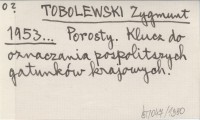 o?
TOBOLEWSKI Zygmunt
1953... Porosty. Klucz do
oznaczania pospolitszych
gatunków krajowych.